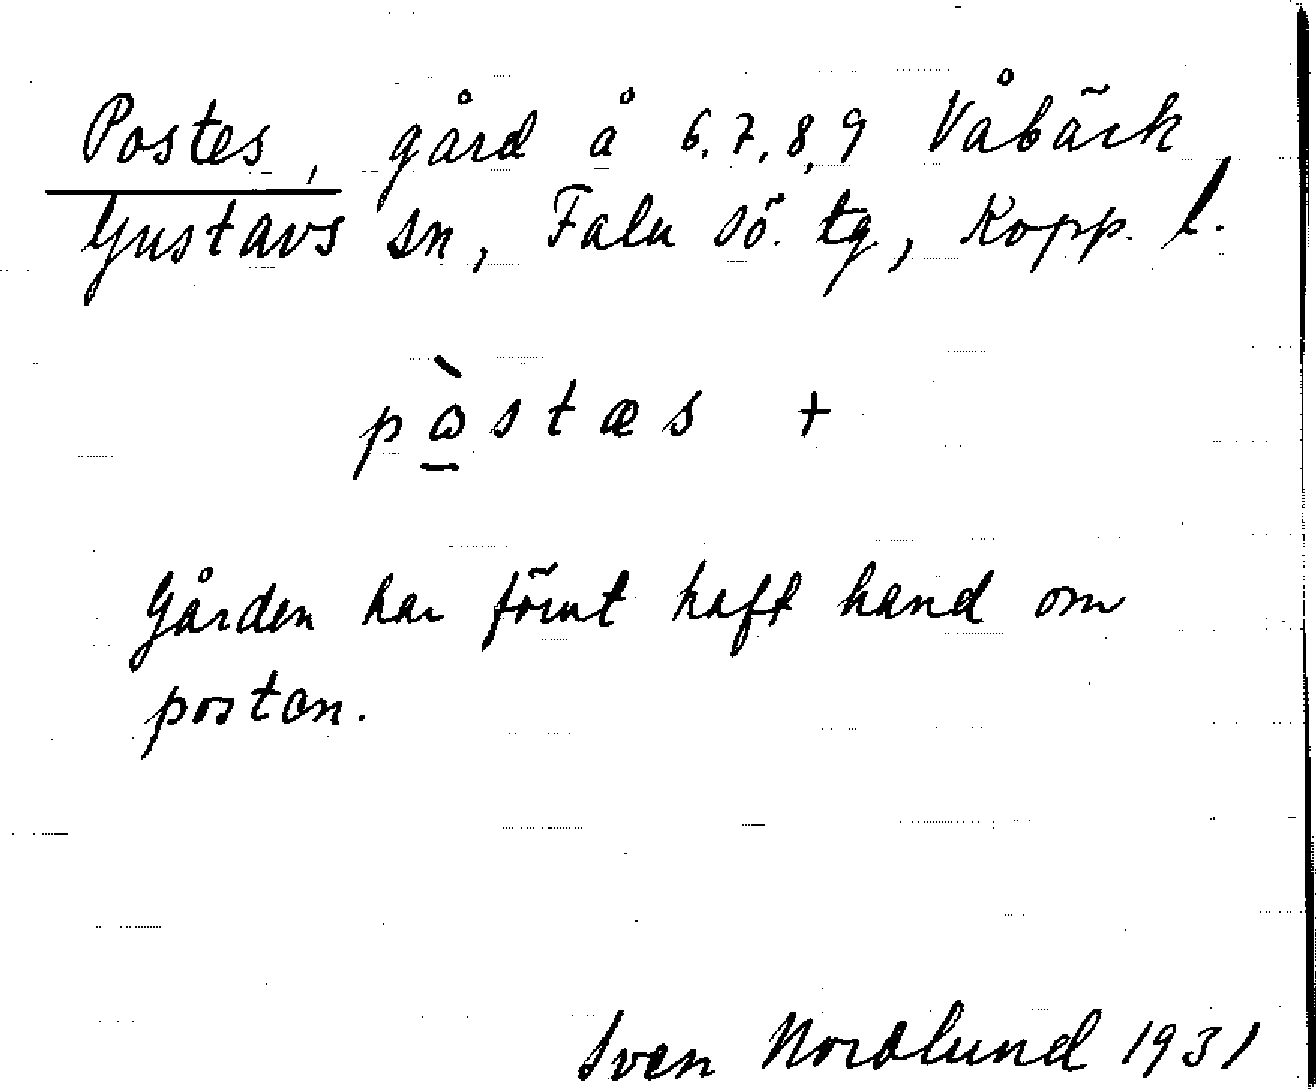 Postes, gård å 6,7,8,9 Våbäck
Gustavs sn, Falu sö. tg, Kopp. l.
pò̱stæs +
Gården har förut haft hand om
posten.
Sven Nordlund 1931